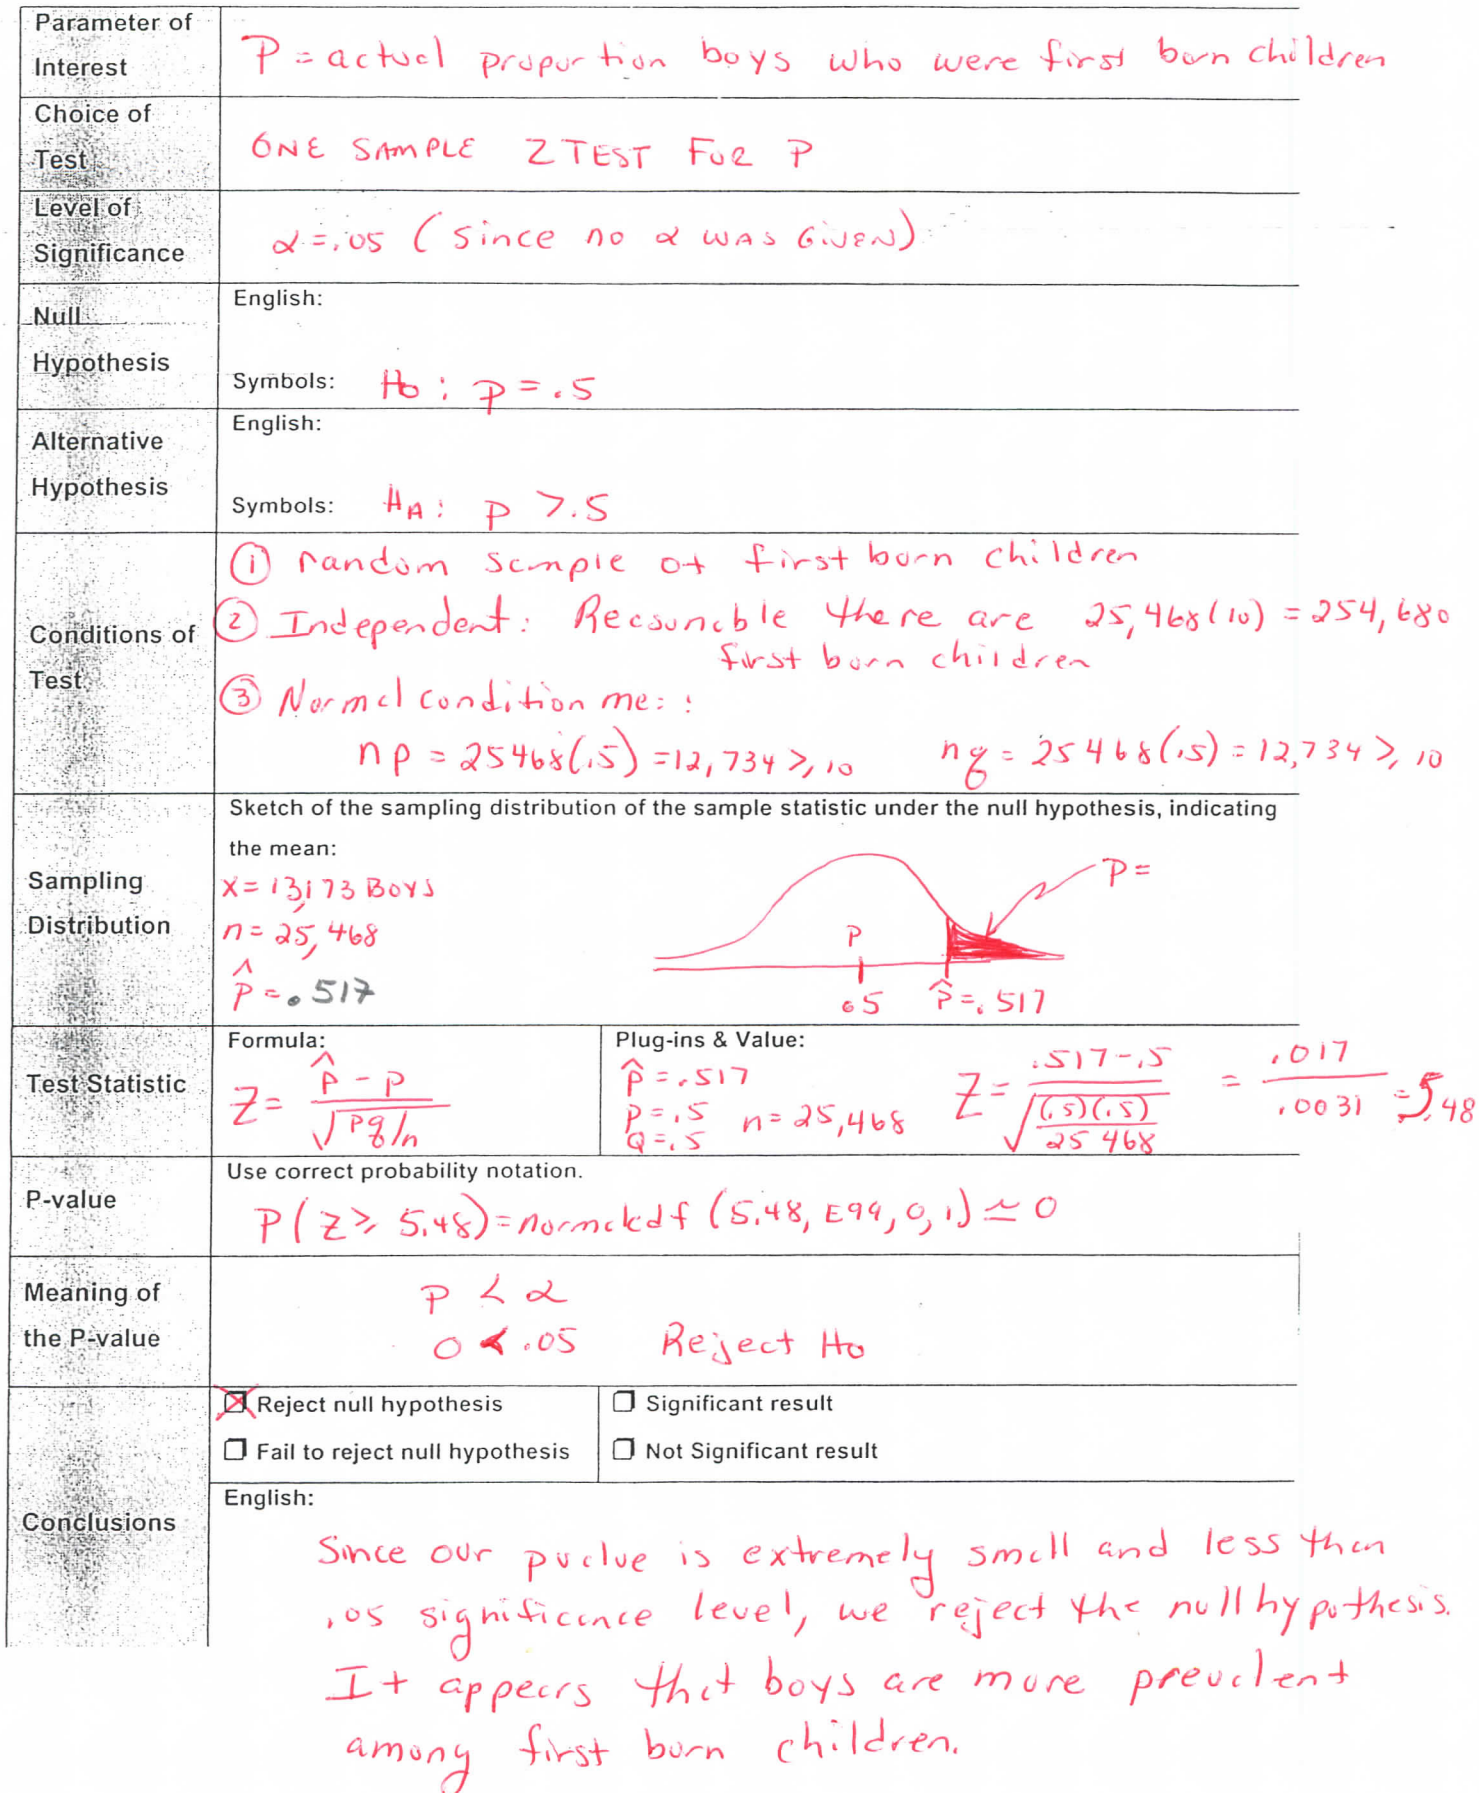 Parameter of
Interest
P = actual proportion boys who were first born children
Choice of
Test
ONE SAMPLE Z TEST FOR P
Level of
Significance
α = .05 (since no α WAS GIVEN)
Null
Hypothesis
English:
Symbols: Ho : p = .5
Alternative
Hypothesis
English:
Symbols: HA : p > .5
Conditions of
Test
① random sample of first born children
② Independent: Reasonable there are 25,468(10) = 254,680
first born children
③ Normal condition met:
np = 25468(.5) = 12,734 ≥ 10 nq = 25468(.5) = 12,734 ≥ 10
Sampling
Distribution
Sketch of the sampling distribution of the sample statistic under the null hypothesis, indicating
the mean:
x = 13,173 BOYS
n = 25,468
p̂ = .517
P =
P
.5 p̂ = .517
Test Statistic
Formula:
Z = (p̂ - p) / √(pq/n)
Plug-ins & Value:
p̂ = .517
P = .5
Q = .5 n = 25,468
Z = (.517 - .5) / √((.5)(.5)/25468) = .017 / .0031 = 5.48
P-value
Use correct probability notation.
P(Z ≥ 5.48) = normalcdf (5.48, E99, 0, 1) ≃ 0
Meaning of
the P-value
P < α
0 < .05 Reject Ho
Conclusions
Reject null hypothesis
Significant result
Fail to reject null hypothesis
Not Significant result
English:
Since our pvalue is extremely small and less than
.05 significance level, we reject the null hypothesis.
It appears that boys are more prevalent
among first born children.